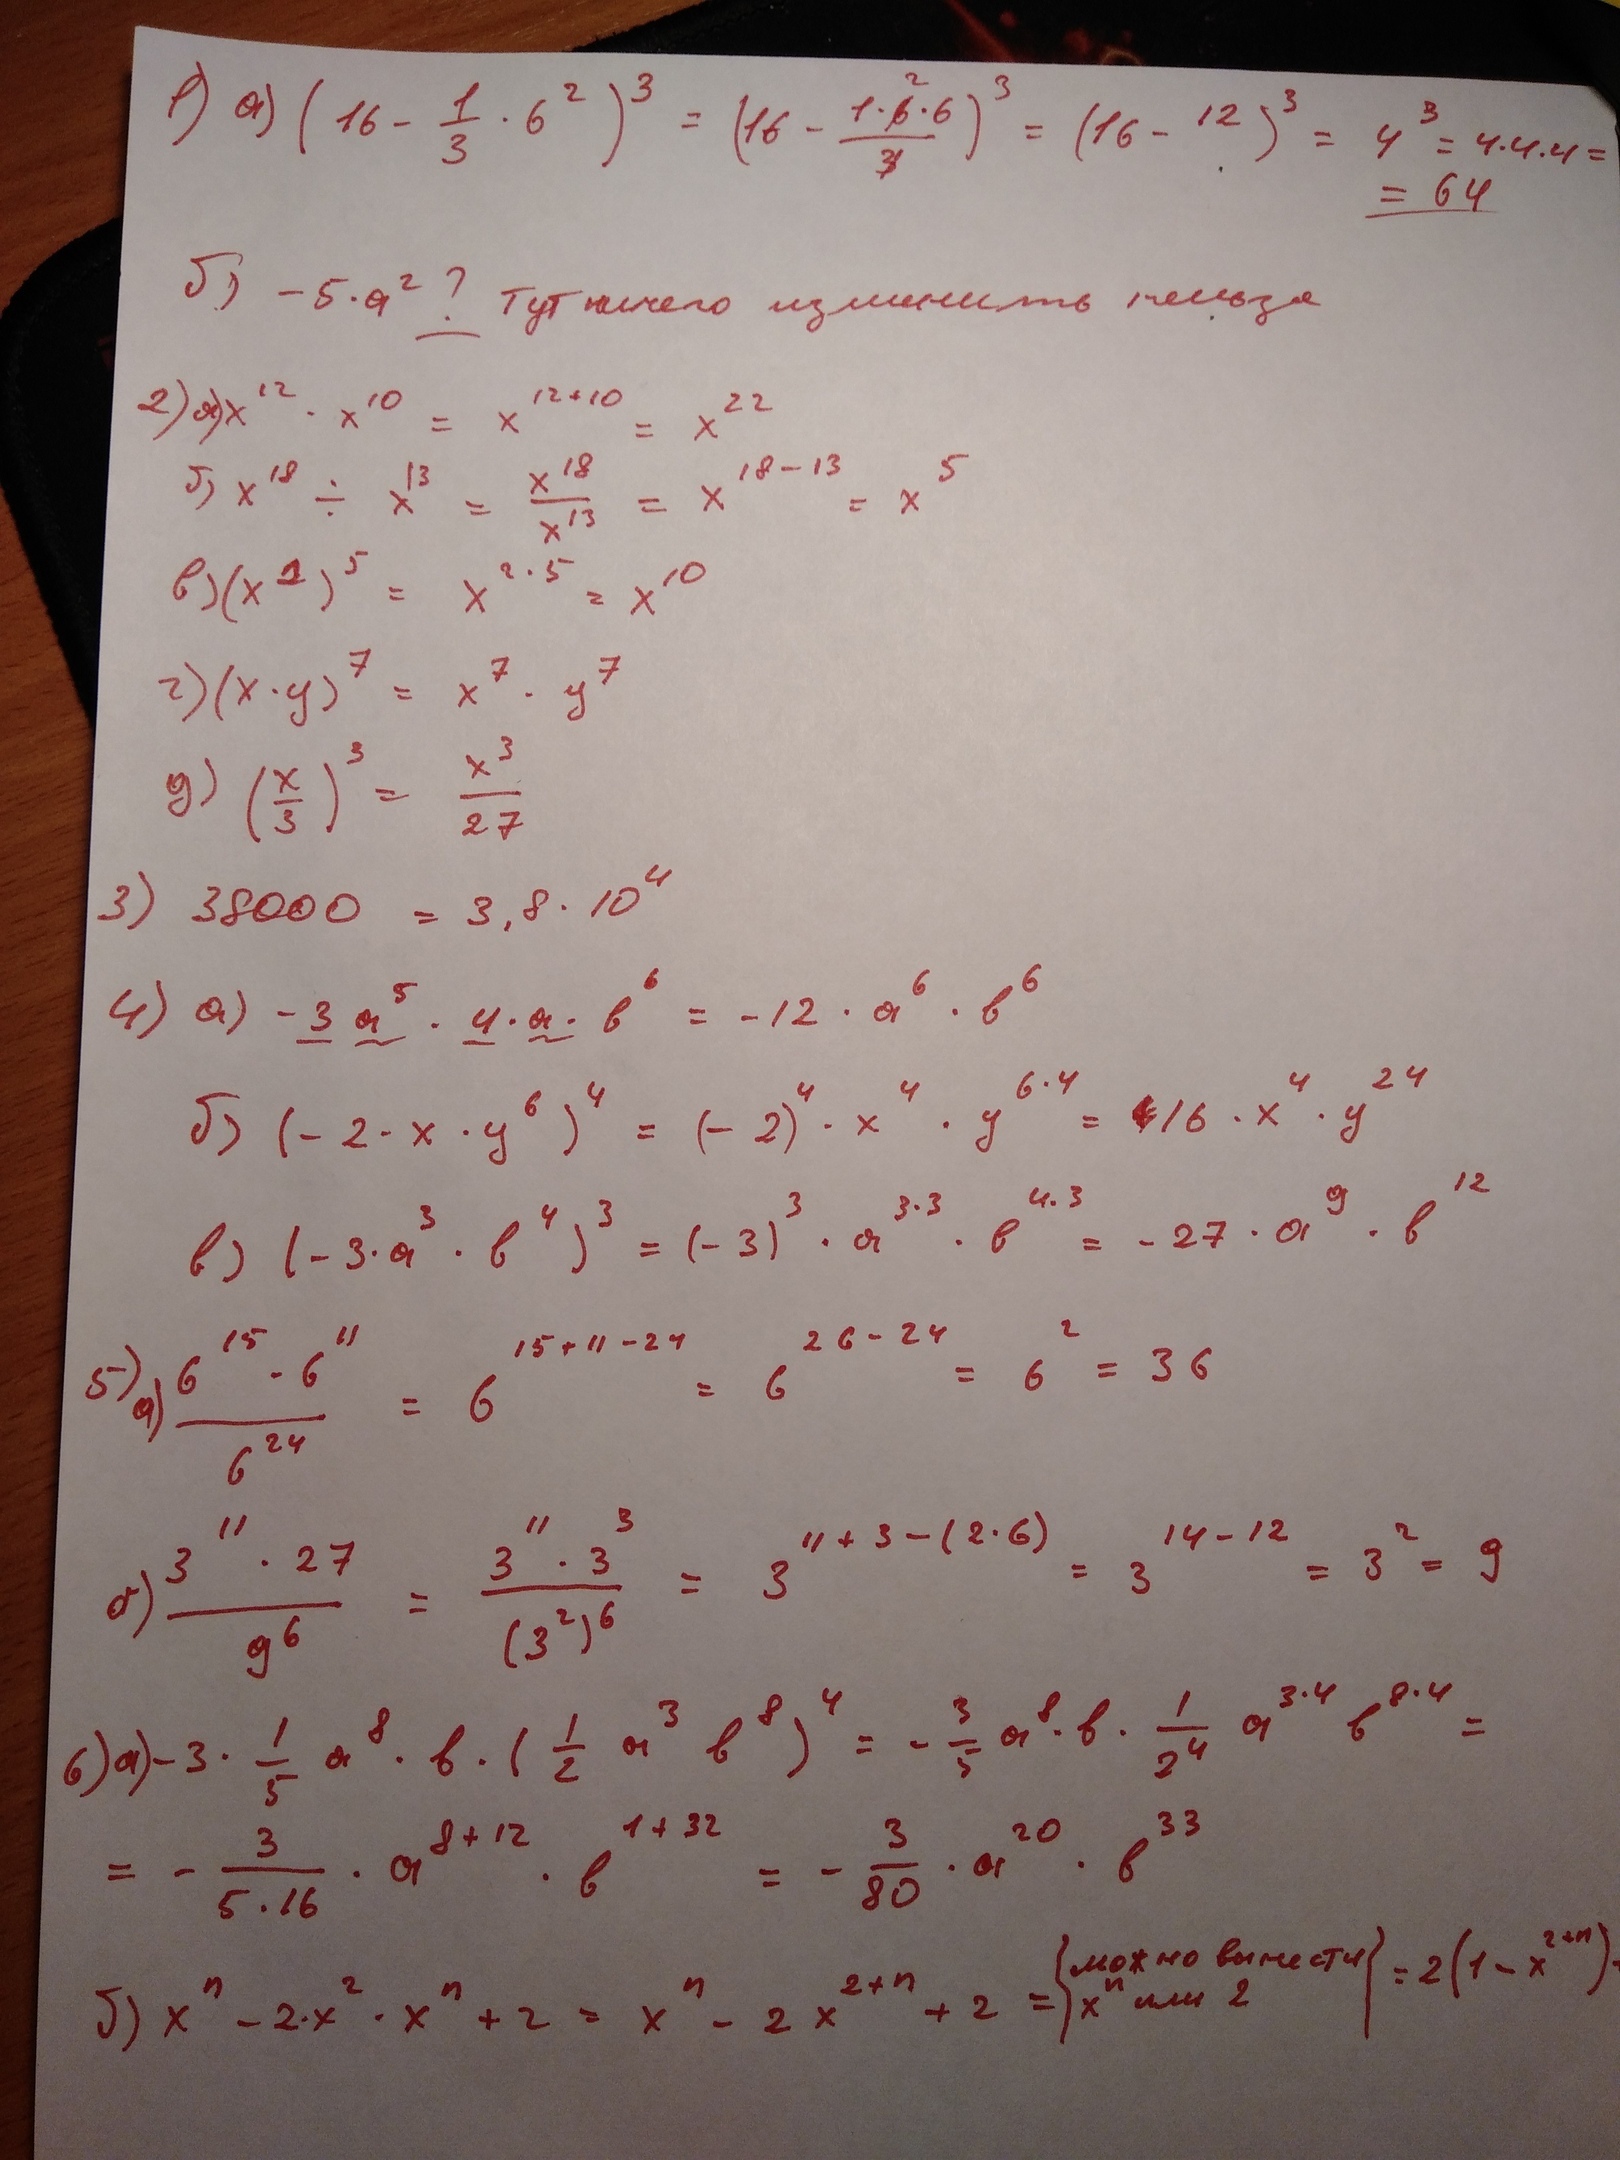 1) а) (16 - 1/3 · 6²)³ = (16 - 1·6·6/3)³ = (16 - 12)³ = 4³ = 4·4·4 =
= 64
б) -5·а² ? Тут ничего изменить нельзя
2) а) x¹² · x¹⁰ = x¹²⁺¹⁰ = x²²
б) x¹⁸ ÷ x¹³ = x¹⁸/x¹³ = x¹⁸⁻¹³ = x⁵
в) (x²)⁵ = x^(2·5) = x¹⁰
г) (x·y)⁷ = x⁷ · y⁷
д) (x/3)³ = x³/27
3) 38000 = 3,8 · 10⁴
4) а) -3 а⁵ · 4 · а · в⁶ = -12 · а⁶ · в⁶
б) (-2 · x · y⁶)⁴ = (-2)⁴ · x⁴ · y^(6·4) = 16 · x⁴ · y²⁴
в) (-3 · а³ · в⁴)³ = (-3)³ · а^(3·3) · в^(4·3) = -27 · а⁹ · в¹²
5) а) 6¹⁵ · 6¹¹/6²⁴ = 6¹⁵⁺¹¹⁻²⁴ = 6²⁶⁻²⁴ = 6² = 36
б) 3¹¹ · 27/9⁶ = 3¹¹ · 3³/(3²)⁶ = 3^(11+3-(2·6)) = 3¹⁴⁻¹² = 3² = 9
6) а) -3 · 1/5 а⁸ · в · (1/2 а³ в⁸)⁴ = -3/5 а⁸ · в · 1/2⁴ а^(3·4) в^(8·4) =
= -3/(5·16) · а⁸⁺¹² · в¹⁺³² = -3/80 · а²⁰ · в³³
б) xⁿ - 2·x² · xⁿ + 2 = xⁿ - 2x²⁺ⁿ + 2 = {можно вынести xⁿ или 2} = 2(1 - x²⁺ⁿ)